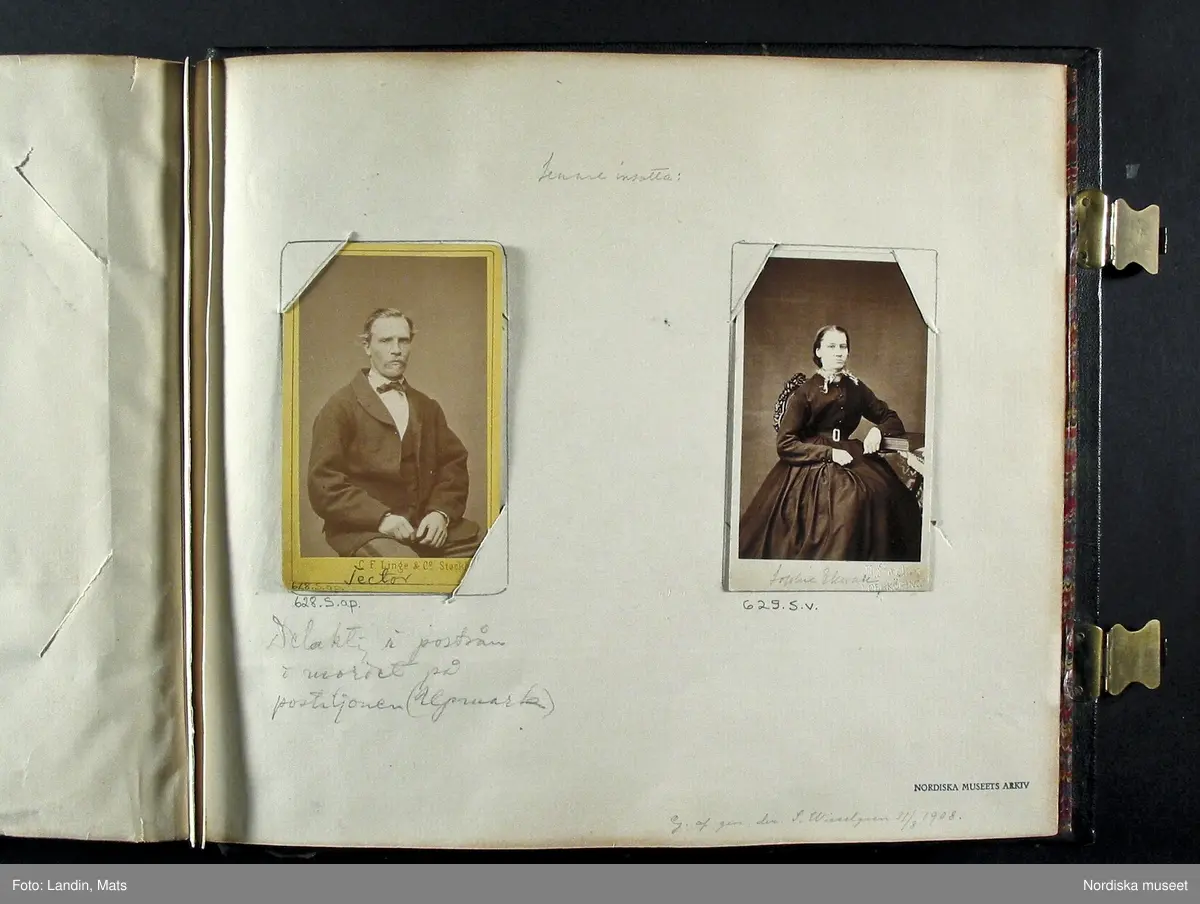 insatta:
C. F. Linge & Co. Stock
Tector
628.S.ap.
628.S.ap.
Delaktig i postrån
i mordet på
postiljonen (Upmark)
Sophie
629.S.v.
NORDISKA MUSEETS ARKIV
G. af gen. dir. S. Wieselgren 11/3 1908.
Foto: Landin, Mats
Nordiska museet